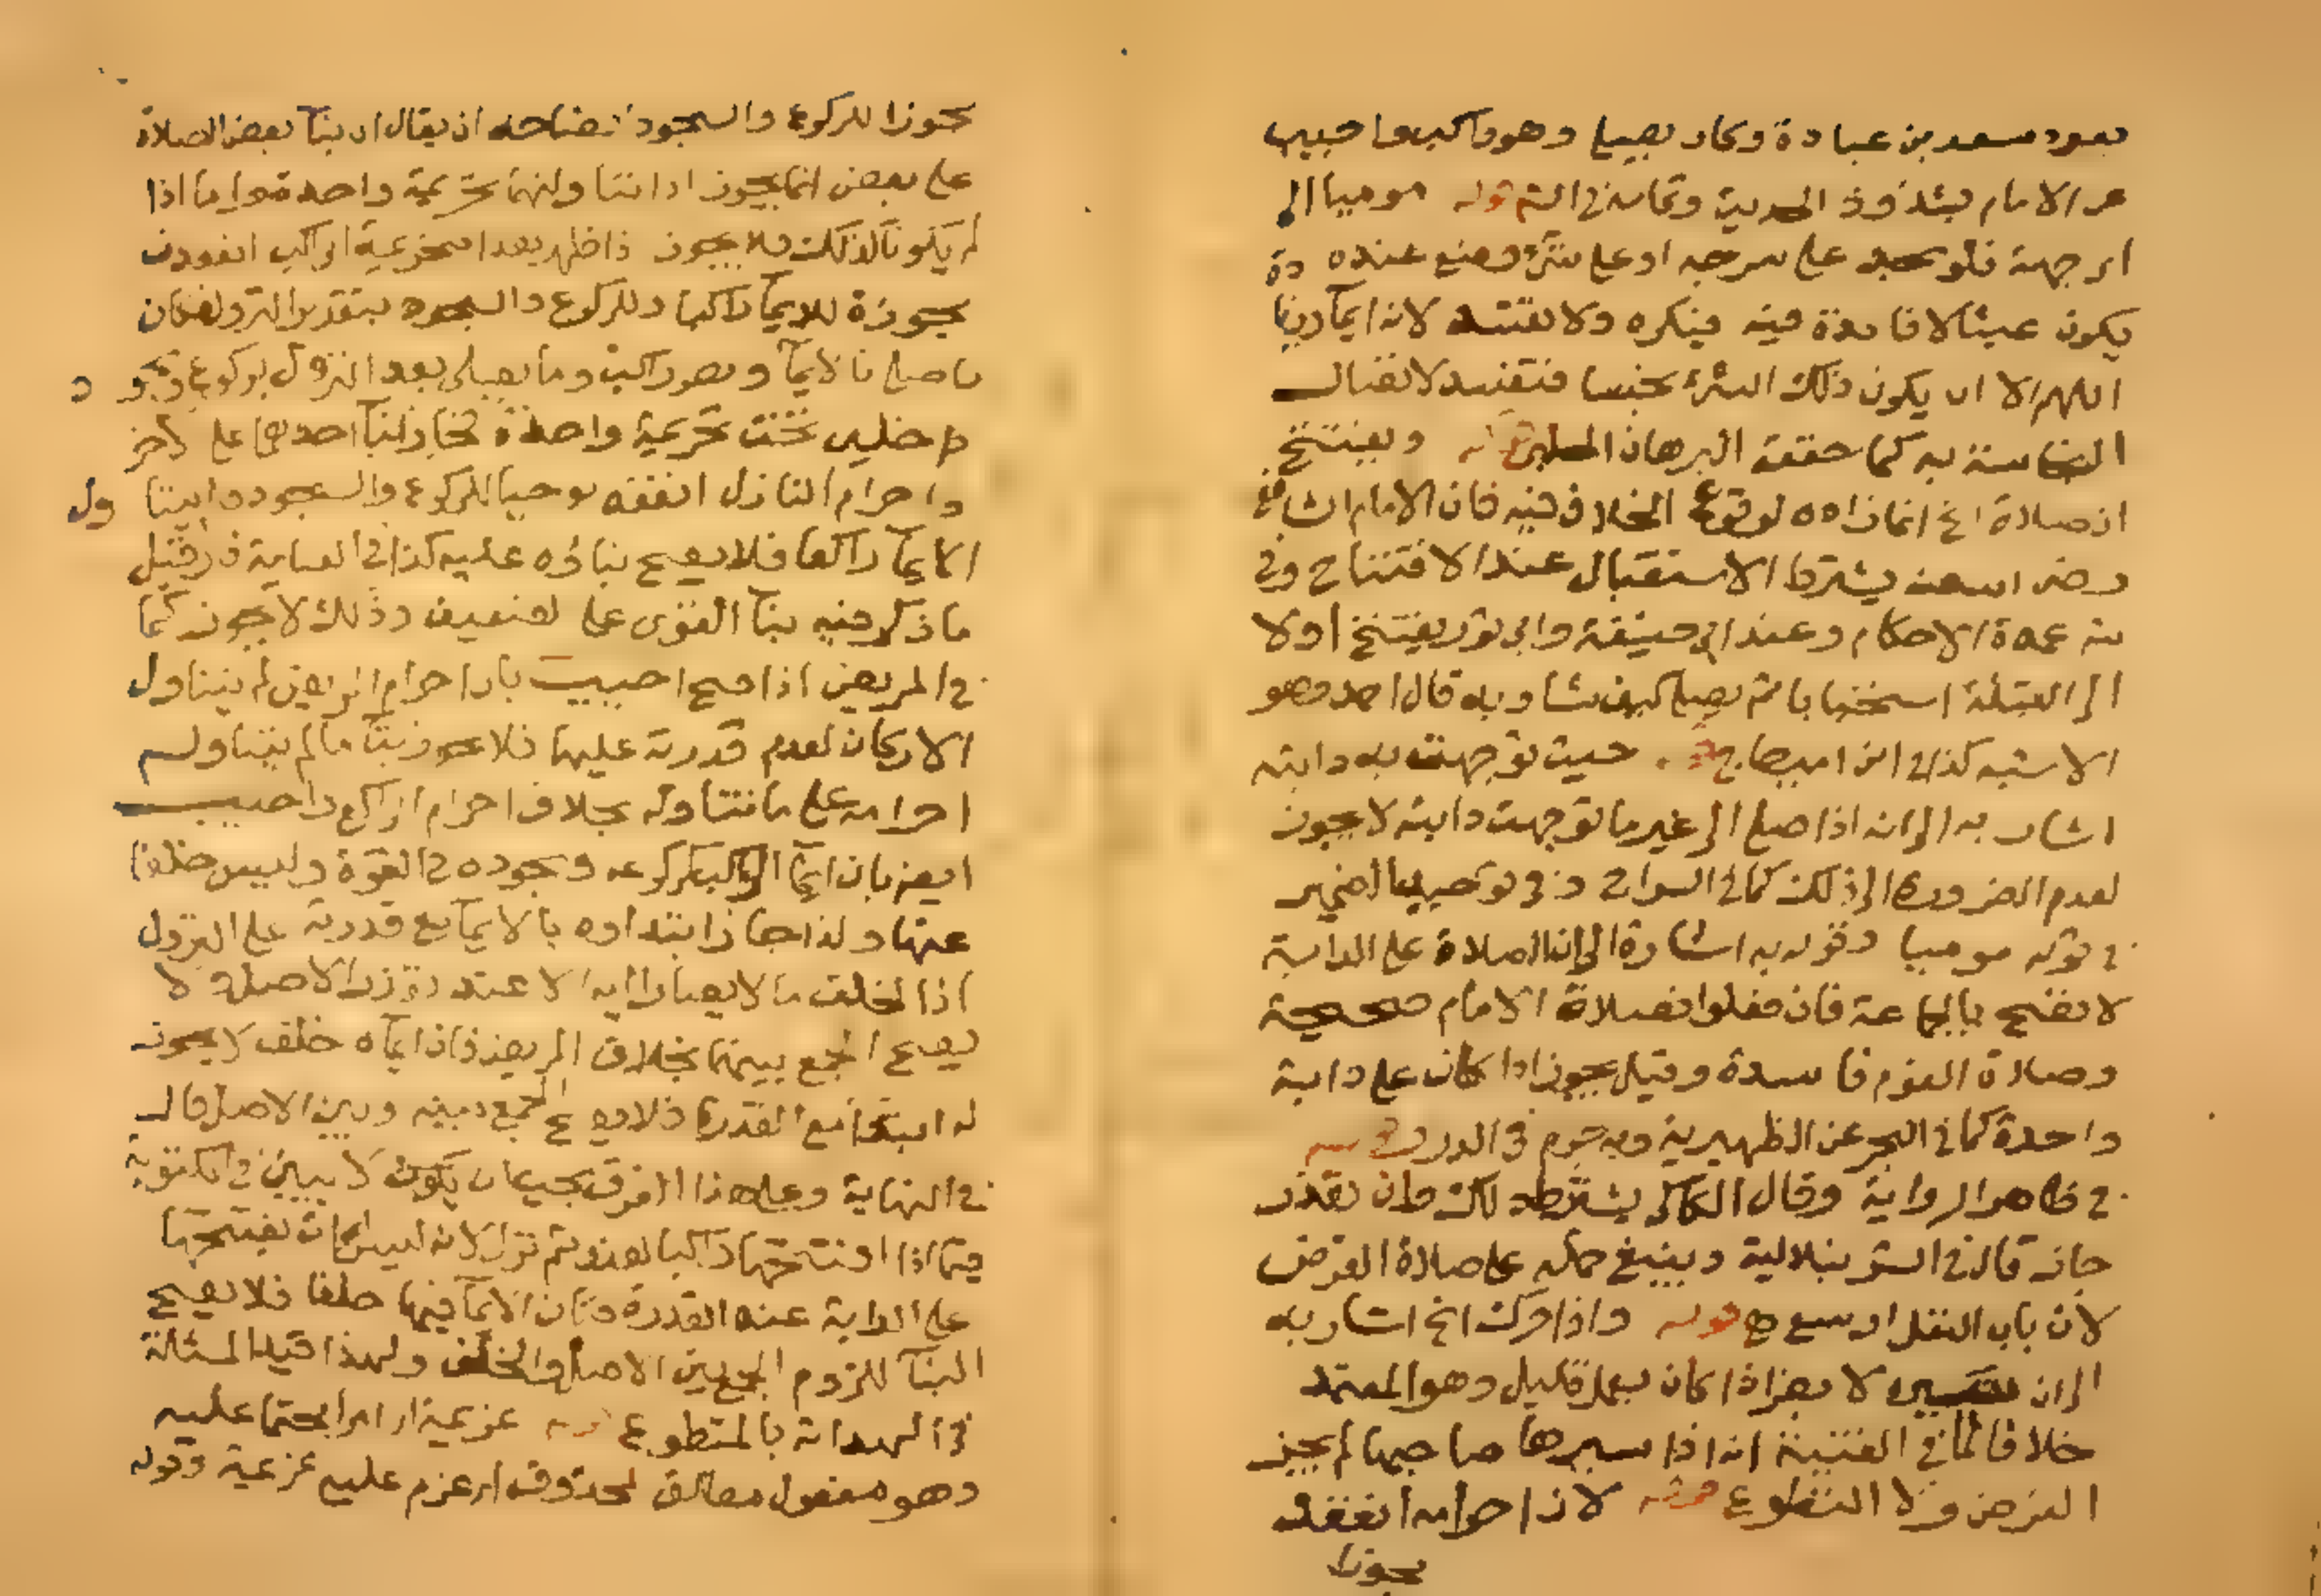 يعود سعد بن عبادة وكان يصلي وهو راكب واجيب
عن الامام بشذوذ الحديث وتمامه في النهر قوله موميا الى
اي جهة فلو سجد على سرجه او على شئ وضع عنده
يكون عبثا لا فائدة فيه فيكره ولا تفسد لانه ايماء وزيادة
اللهم الا ان يكون ذلك الشئ نجسا فتفسد لاتصال
النجاسة به كما حققه البرهان الحلبي قوله ويفتتح
الصلاة الخ انما زاده لوقوع الخلاف فيه فان الامام الشافعي
رضى الله عنه يشترط الاستقبال عند الافتتاح وفي
عمدة الاحكام وعند ابي حنيفة وابي ثور يفتتح اولا
الى القبلة استحبابا ثم يصلي كيف شاء وبه قال احمد وهو
الاشبه كذا في ابن امير حاج قوله حيث توجهت به دابته
اشار به الى انه اذا صلى الى غير ما توجهت دابته لا يجوز
لعدم الضرورة الى ذلك كما في السراج وفي توحيد الضمير
في قوله موميا وقوله به اشارة الى ان الصلاة على الدابة
لا تصح بالجماعة فان فعلوا فصلاة الامام صحيحة
وصلاة القوم فاسدة وقيل يجوز اذا كان على دابة
واحدة كما في البحر عن الظهيرية وبه جزم في الدرر قوله
في ظاهر الرواية وقال الكاكي يشترط ذلك وان تعذر
جاز قال في الشرنبلالية وينبغي حمله على صلاة الفرض
لان باب النفل اوسع ح قوله واذا حرك الخ اشار به
الى ان تسييره لا يضر اذا كان بعمل قليل وهو المعتمد
خلافا لما في القنية انه اذا سيرها صاحبها لم يجز
الفرض ولا التطوع قوله لان احرامه انعقد
مجوزا
مجوزا للركوع والسجود ايضاحه ان يقال ان بناء بعض الصلاة
على بعض انما يجوز اذا تناولتهما تحريمة واحدة واما اذا
لم يكونا كذلك فلا يجوز اذا ظهر هذا فتحريمة الراكب انعقدت
مجوزة للايماء راكبا وللركوع والسجود بتقدير النزول فكان
ما صلى بالايماء وهو راكب وما يصلي بعد النزول بركوع وسجود
داخلين تحت تحريمة واحدة فجاز بناء احدهما على الاخر
واحرام النازل انعقد موجبا للركوع والسجود دون
الايماء راكبا فلا يصح بناؤه عليه كذا في العناية فان قيل
ما ذكر فيه بناء القوي على الضعيف وذلك لا يجوز كما
في المريض اذا صح اجيب بان احرام المريض لم يتناول
الاركان لعدم قدرته عليها فلا يجوز بناء ما لم يتناوله
احرامه على ما تناوله بخلاف احرام الراكب واجيب
ايضا بان ايماء الراكب كركوعه وسجوده في القوة وليس خلفا
عنها ولذا جاز ابتداؤه بالايماء مع قدرته على النزول
اذ الخلف ما لا يصار اليه الا عند تعذر الاصل ولا
يصح الجمع بينهما بخلاف المريض فان ايماءه خلف لا يجوز
له ابتداء مع القدرة فلا يصح الجمع بينه وبين الاصل قال
في النهاية وعلى هذا الفرق يجب ان يكون لا يبني في المكتوبة
فيما اذا افتتحها راكبا لعذر ثم نزل لانه ليس له ان يفتتحها
على الدابة عند القدرة فكان الايماء فيها خلفا فلا يصح
البناء للزوم الجمع بين الاصل والخلف ولهذا قيد المسئلة
في الهداية بالمتطوع قوله عزيمة اي امرا محتما عليه
وهو مفعول مطلق لمحذوف اي عزم عليه عزيمة وقوله